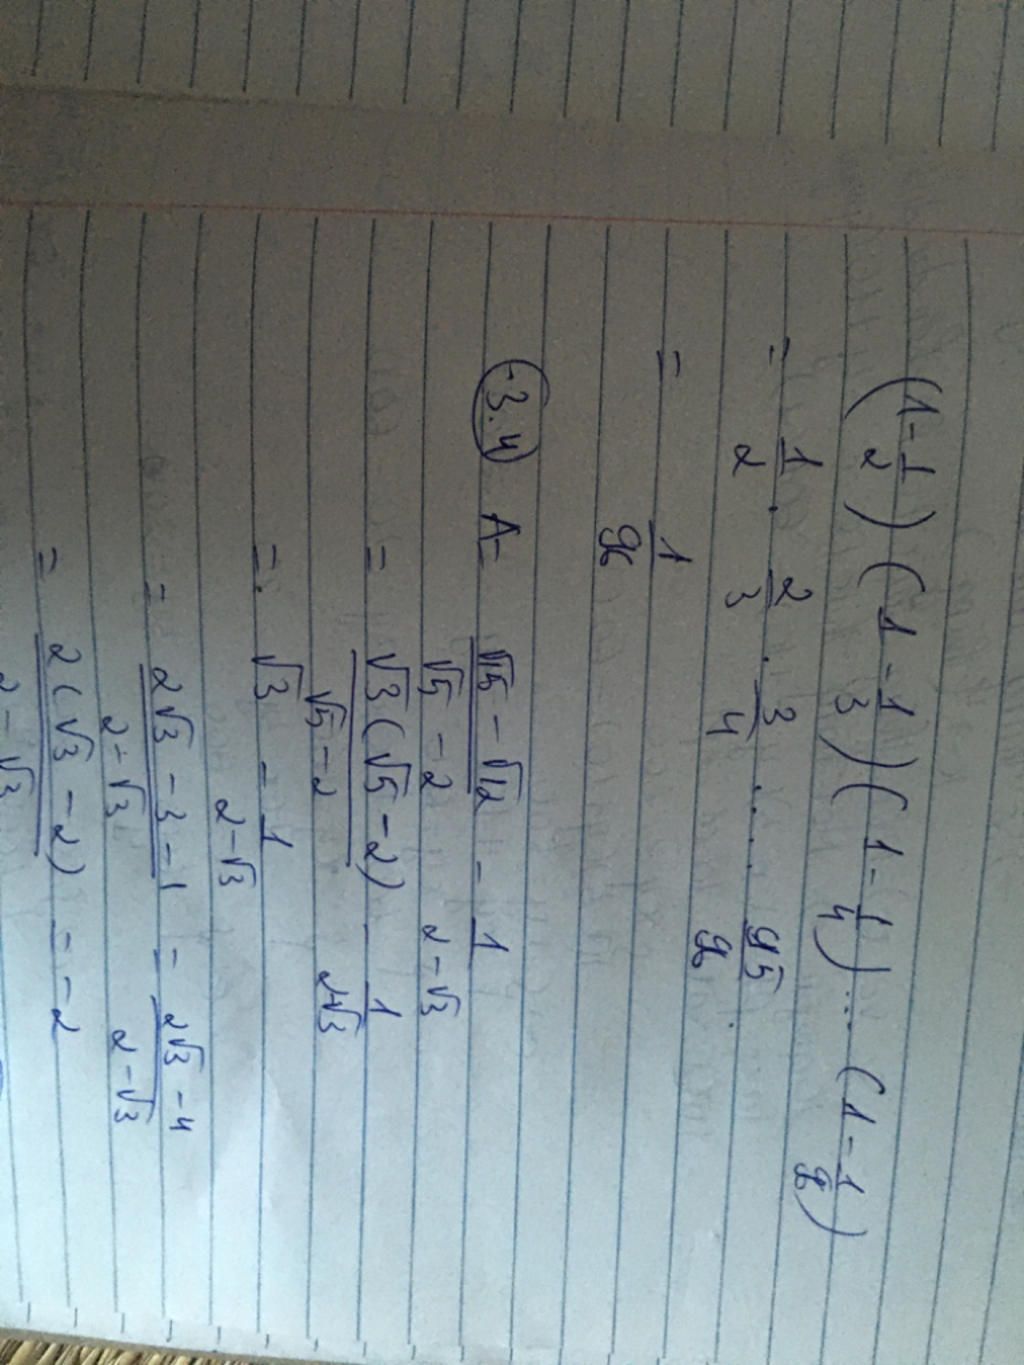 (1 - 1/2) (1 - 1/3) (1 - 1/4) ... (1 - 1/96)
= 1/2 . 2/3 . 3/4 .... 95/96
= 1/96
3.4) A = (√15 - √12)/(√5 - 2) - 1/(2 - √3)
= √3(√5 - 2)/(√5 - 2) - 1/(2-√3)
= √3 - 1/(2-√3)
= (2√3 - 3 - 1)/(2 - √3) = (2√3 - 4)/(2 - √3)
= 2(√3 - 2)/(2 - √3) = -2